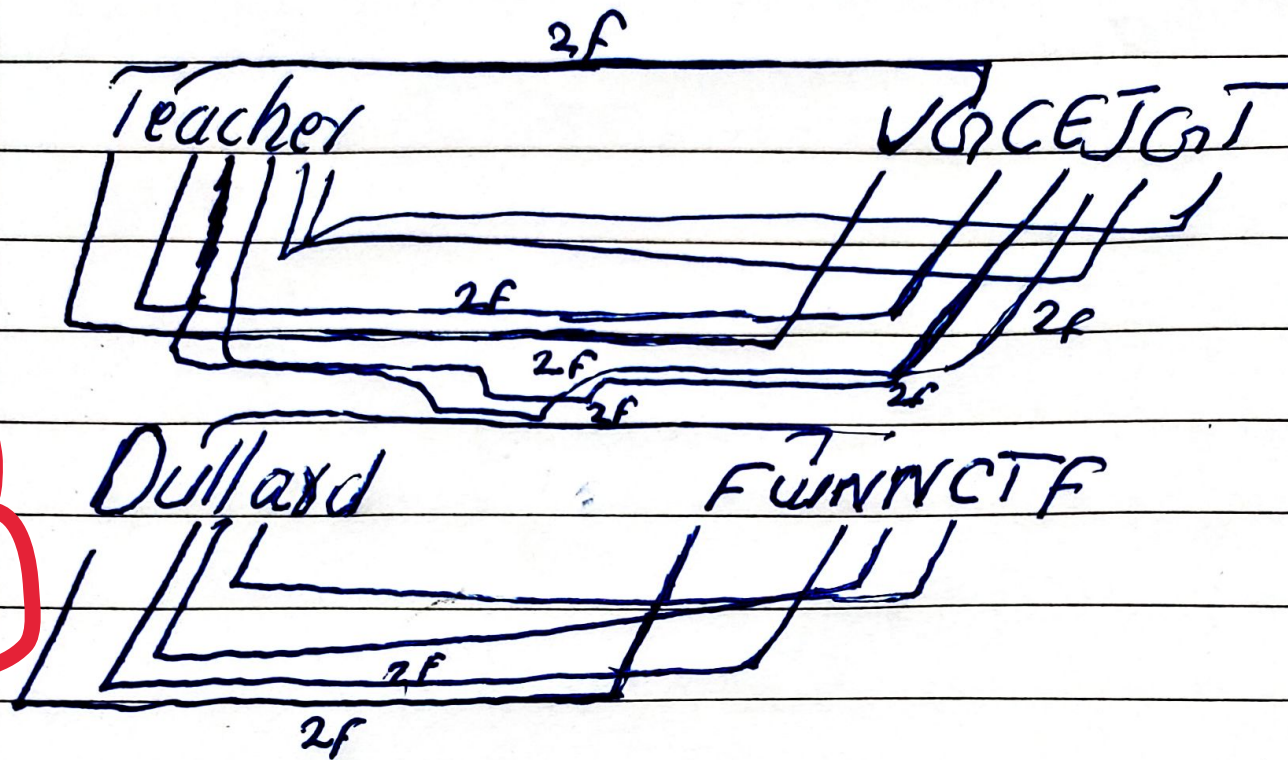 2f
Teacher VGCEJGT
2f 2f
2f
2f 2f
Dullard FWNNCTF
2f
2f